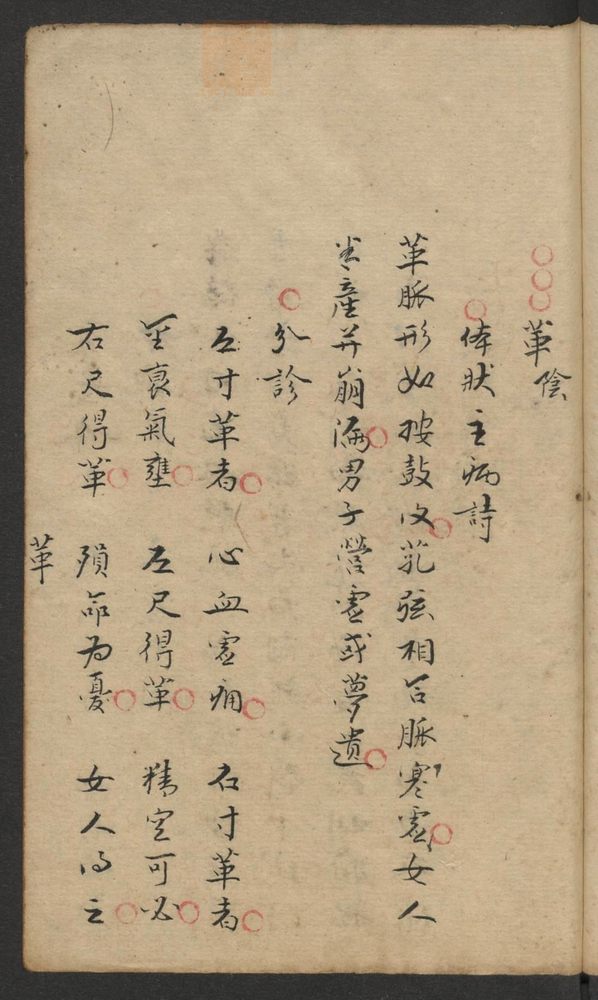 革陰
体状主病詩
革脈形如按鼓皮芤弦相合脈寒虛女人
半產并崩漏男子營虛或夢遺
分診
左寸革者 心血虛痛 右寸革者
金衰氣壅 左尺得革 精空可必
右尺得革 殞命為憂 女人得之
革